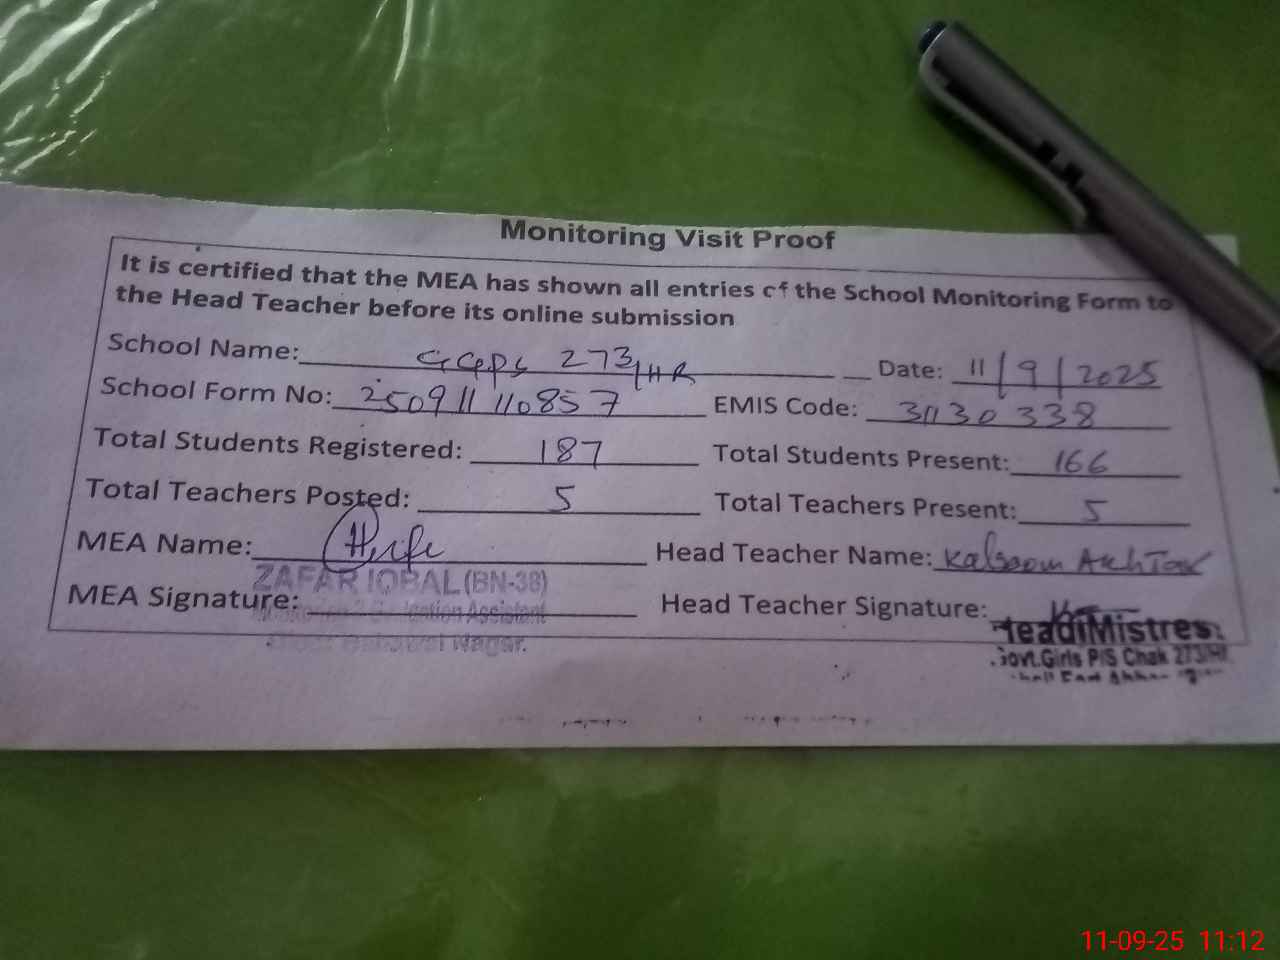 Monitoring Visit Proof
It is certified that the MEA has shown all entries of the School Monitoring Form to
the Head Teacher before its online submission
School Name: GGPS 273/HR Date: 11/9/2025
School Form No: 250911110857 EMIS Code: 31130338
Total Students Registered: 187 Total Students Present: 166
Total Teachers Posted: 5 Total Teachers Present: 5
MEA Name: Head Teacher Name: Kalsoom Akhtar
ZAFAR IQBAL (BN-38)
MEA Signature: Head Teacher Signature:
HeadMistres
Govt.Girls P/S Chak 273/H
11-09-25 11:12